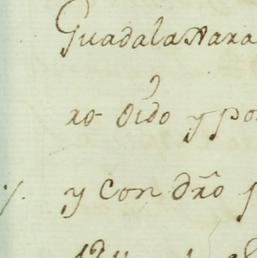 Guadalaxara
ro oido y po
y con dr̃o